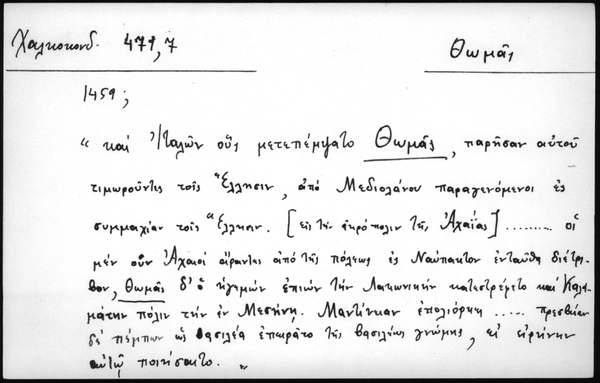 Χαλκοκονδ. 471,7
Θωμᾶς
1459;
" καὶ Ἰταλῶν οὓς μετεπέμψατο Θωμᾶς, παρῆσαν αὐτοῦ
τιμωροῦντες τοῖς Ἕλλησιν, ἀπὸ Μεδιολάνου παραγενόμενοι ἐς
συμμαχίαν τοῖς Ἕλλησιν. [εἰς τὴν ἀκρόπολιν τῆς Ἀχαΐας] ......... οἱ
μὲν οὖν Ἀχαιοὶ ἄραντες ἀπὸ τῆς πόλεως ἐς Ναύπακτον ἐνταῦθα διέτρι-
βον, Θωμᾶς δ' ὁ ἡγεμὼν ἐπιὼν τὴν Λακωνικὴν κατεστρέφετο καὶ Καλα-
μάτην πόλιν τὴν ἐν Μεσήνῃ. Μαντίνειαν ἐπολιόρκει ..... πρεσβείαν
δὲ πέμπων ὡς βασιλέα ἐπειρᾶτο τῆς βασιλέως γνώμης, εἰ εἰρήνην
αὐτῷ ποιήσαιτο. "